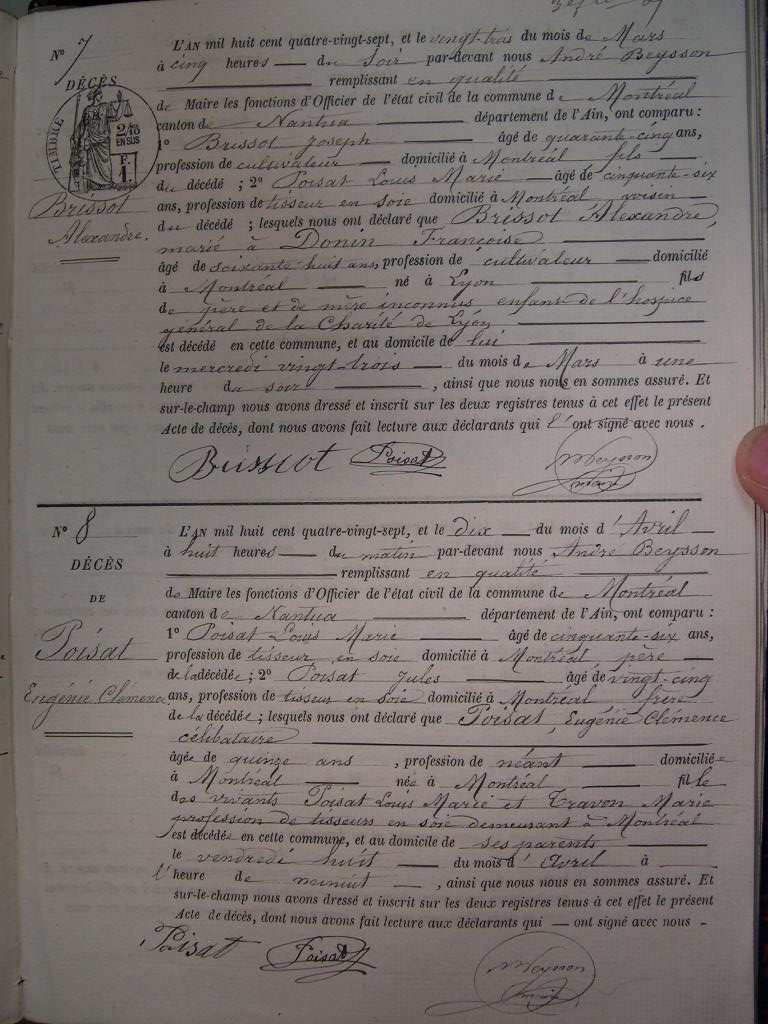 N° 7
DÉCÈS
TIMBRE
2/10
EN SUS
Brissot
Alexandre.
L'AN mil huit cent quatre-vingt-sept, et le vingt-trois du mois de Mars
à cinq heures du soir par-devant nous André Beysson
remplissant en qualité
de Maire les fonctions d'Officier de l'état civil de la commune de Montréal
canton de Nantua département de l'Ain, ont comparu :
1° Brissot Joseph âgé de quarante-cinq ans,
profession de cultivateur domicilié à Montréal fils
du décédé ; 2° Poisat Louis Marie âgé de cinquante-six
ans, profession de tisseur en soie domicilié à Montréal voisin
du décédé ; lesquels nous ont déclaré que Brissot Alexandre,
marié à Donin Françoise
âgé de soixante huit ans, profession de cultivateur domicilié
à Montréal né à Lyon fils
de père et de mère inconnus enfant de l'hospice
général de la Charité de Lyon
est décédé en cette commune, et au domicile de lui
le mercredi vingt-trois du mois de Mars à une
heure du soir , ainsi que nous nous en sommes assuré. Et
sur-le-champ nous avons dressé et inscrit sur les deux registres tenus à cet effet le présent
Acte de décès, dont nous avons fait lecture aux déclarants qui l'ont signé avec nous .
Brissot Poisat
N° 8
DÉCÈS
DE
Poisat
Eugénie Clémence
L'AN mil huit cent quatre-vingt-sept, et le dix du mois d'Avril
à huit heures du matin par-devant nous André Beysson
remplissant en qualité
de Maire les fonctions d'Officier de l'état civil de la commune de Montréal
canton de Nantua département de l'Ain, ont comparu :
1° Poisat Louis Marie âgé de cinquante-six ans,
profession de tisseur en soie domicilié à Montréal père
de la décédée ; 2° Poisat Jules âgé de vingt-cinq
ans, profession de tisseur en soie domicilié à Montréal frère
de la décédée ; lesquels nous ont déclaré que Poisat, Eugénie Clémence
célibataire
âgée de quinze ans , profession de néant domiciliée
à Montréal née à Montréal fille
des vivants Poisat Louis Marie et Travon Marie
profession de tisseurs en soie demeurant à Montréal
est décédée en cette commune, et au domicile de ses parents
le vendredi huit du mois d'Avril à
l'heure de minuit , ainsi que nous nous en sommes assuré. Et
sur-le-champ nous avons dressé et inscrit sur les deux registres tenus à cet effet le présent
Acte de décès, dont nous avons fait lecture aux déclarants qui ont signé avec nous
Poisat Poisat